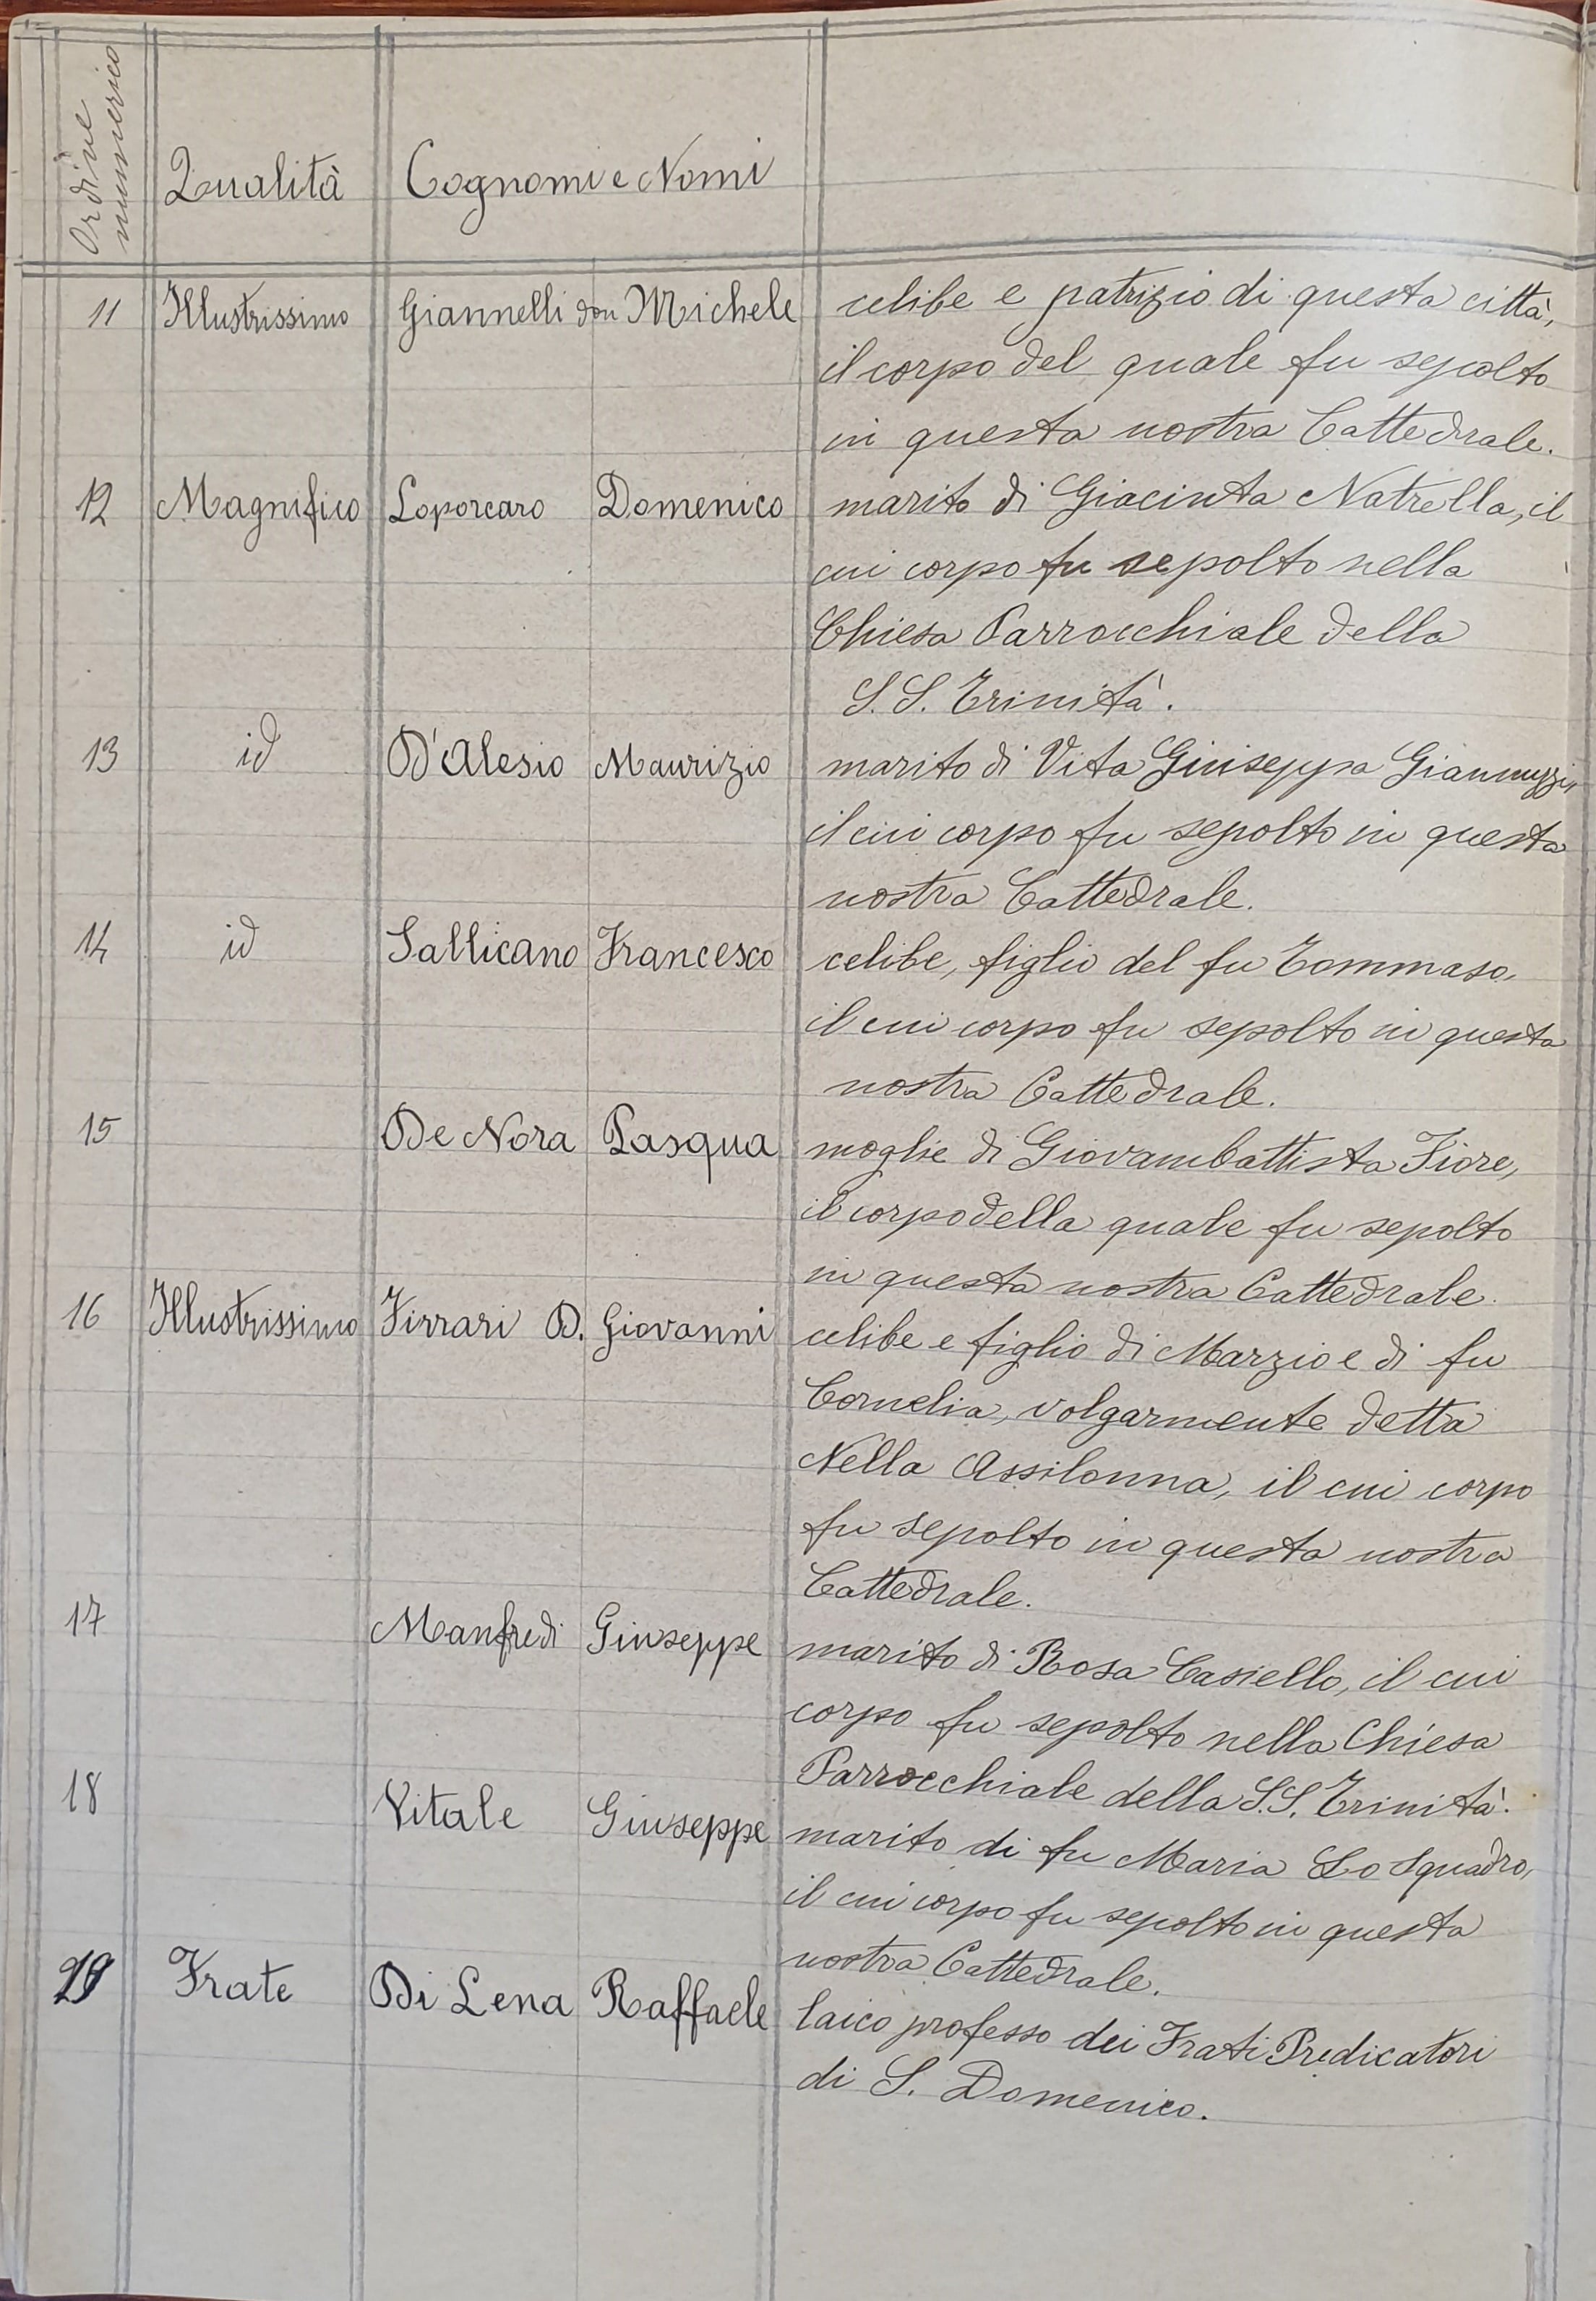 Ordine numerico Qualità Cognomi e Nomi
11 Illustrissimo Giannelli don Michele celibe e patrizio di questa città,
il corpo del quale fu sepolto
in questa nostra Cattedrale.
12 Magnifico Loporcaro Domenico marito di Giacinta Natrella, il
cui corpo fu sepolto nella
Chiesa Parrocchiale della
S.S. Trinità.
13 id D'Alesio Maurizio marito di Vita Giuseppa Giannuzzi,
il cui corpo fu sepolto in questa
nostra Cattedrale.
14 id Sallicano Francesco celibe, figlio del fu Tommaso,
il cui corpo fu sepolto in questa
nostra Cattedrale.
15 De Nora Pasqua moglie di Giovambattista Fiore,
il corpo della quale fu sepolto
in questa nostra Cattedrale.
16 Illustrissimo Firrari D. Giovanni celibe e figlio di Marzio e di fu
Cornelia, volgarmente detta
Nella Assilonna, il cui corpo
fu sepolto in questa nostra
Cattedrale.
17 Manfredi Giuseppe marito di Rosa Casiello, il cui
corpo fu sepolto nella Chiesa
Parrocchiale della S.S. Trinità.
18 Vitale Giuseppe marito di fu Maria Lo Squadro,
il cui corpo fu sepolto in questa
nostra Cattedrale.
19 Frate Di Lena Raffaele laico professo dei Frati Predicatori
di S. Domenico.